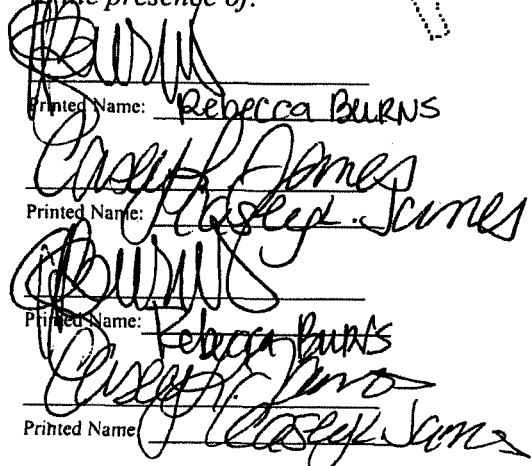 the presence of:
RBurns
Printed Name: Rebecca BURNS
Casey L. James
Printed Name: Casey L. James
RBurns
Printed Name: Rebecca BURNS
Casey L. James
Printed Name Casey L. James